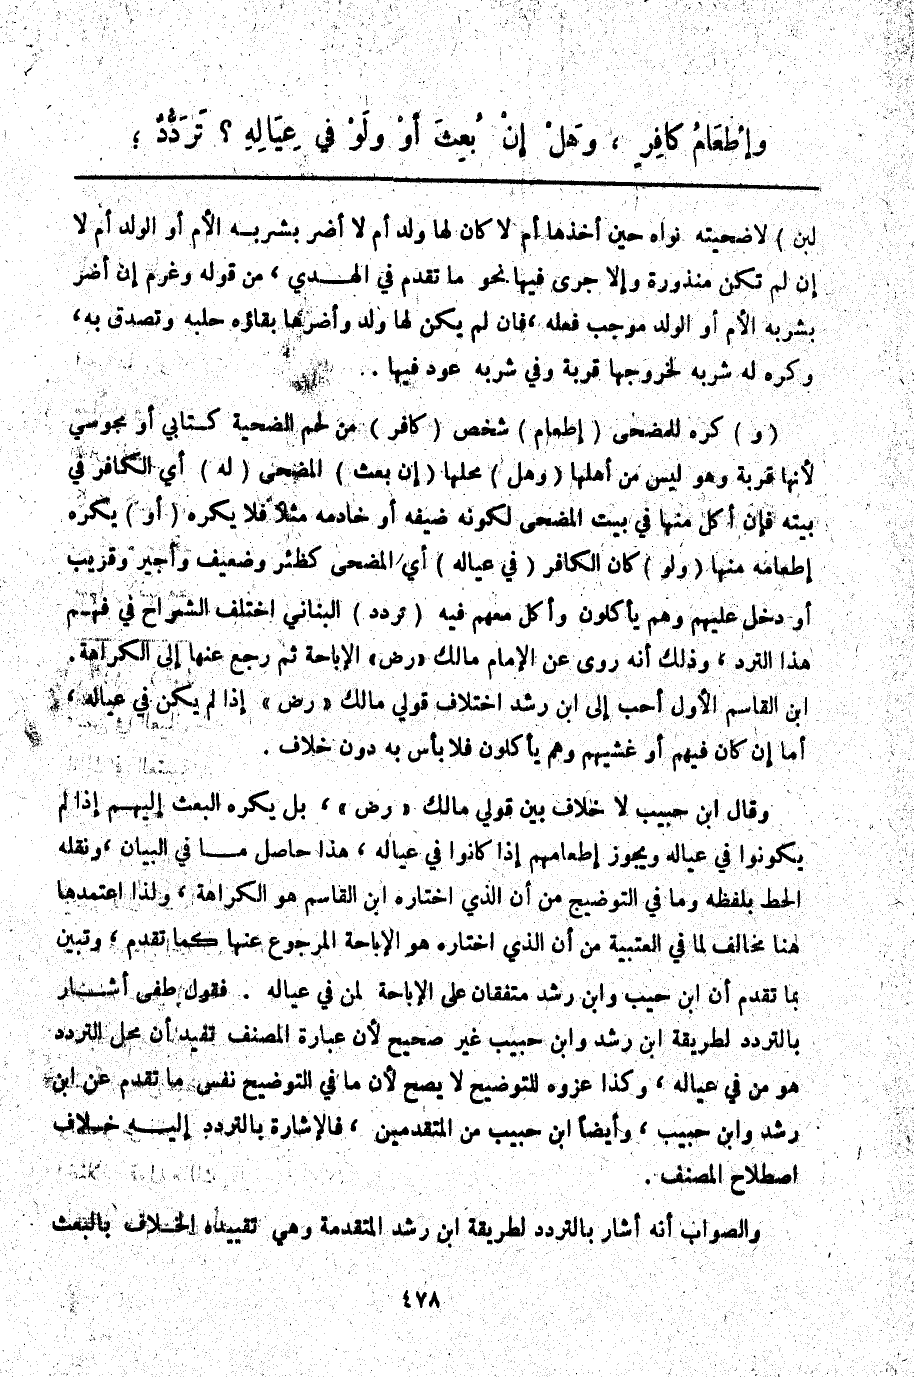 وإطْعَامُ كافِرٍ ، وَهلْ إنْ بُعِثَ أوْ ولَوْ في عِيَالِهِ ؟ تَرَدُّدٌ ؛
لبن ) لاضحيته نواه حين أخذها أم لا كان لها ولد أم لا أضر بشربه الأم أو الولد أم لا
إن لم تكن منذورة وإلا جرى فيها نحو ما تقدم في الهدي ، من قوله وغرم إن أضر
بشربه الأم أو الولد موجب فعله ، فان لم يكن لها ولد وأضرها بقاؤه حلبه وتصدق به،
وكره له شربه لخروجها قربة وفي شربه عود فيها .
( و ) كره للمضحى ( إطعام ) شخص ( كافر ) من لحم الضحية كتابي أو مجوسي
لأنها قربة وهو ليس من أهلها ( وهل ) محلها ( إن بعث ) المضحى ( له ) أي الكافر في
بيته فإن أكل منها في بيت المضحى لكونه ضيفه أو خادمه مثلاً فلا يكره ( أو ) يكره
إطعامه منها ( ولو ) كان الكافر ( في عياله ) أي المضحى كظئر وضعيف وأجير وقريب
أو دخل عليهم وهم يأكلون وأكل معهم فيه ( تردد ) البناني اختلف الشراح في فهم
هذا الترد ، وذلك أنه روى عن الإمام مالك «رض» الإباحة ثم رجع عنها إلى الكراهة.
ابن القاسم الأول أحب إلى ابن رشد اختلاف قولي مالك « رض » إذا لم يكن في عياله ،
أما إن كان فيهم أو غشيهم وهم يأكلون فلا بأس به دون خلاف .
وقال ابن حبيب لا خلاف بين قولي مالك « رض » ، بل يكره البعث إليهم إذا لم
يكونوا في عياله ويجوز إطعامهم إذا كانوا في عياله ، هذا حاصل ما في البيان ، ونقله
الحط بلفظه وما في التوضيح من أن الذي اختاره ابن القاسم هو الكراهة ، ولذا اعتمدها
هنا مخالف لما في العتبية من أن الذي اختاره هو الإباحة المرجوع عنها كما تقدم ، وتبين
بما تقدم أن ابن حبيب وابن رشد متفقان على الإباحة لمن في عياله . فقول طفى أشار
بالتردد لطريقة ابن رشد وابن حبيب غير صحيح لأن عبارة المصنف تفيد أن محل التردد
هو من في عياله ، وكذا عزوه للتوضيح لا يصح لأن ما في التوضيح نفس ما تقدم عن ابن
رشد وابن حبيب ، وأيضاً ابن حبيب من المتقدمين ، فالإشارة بالتردد إليه خلاف
اصطلاح المصنف .
والصواب أنه أشار بالتردد لطريقة ابن رشد المتقدمة وهي تقييده الخلاف بالبعث
٤٧٨